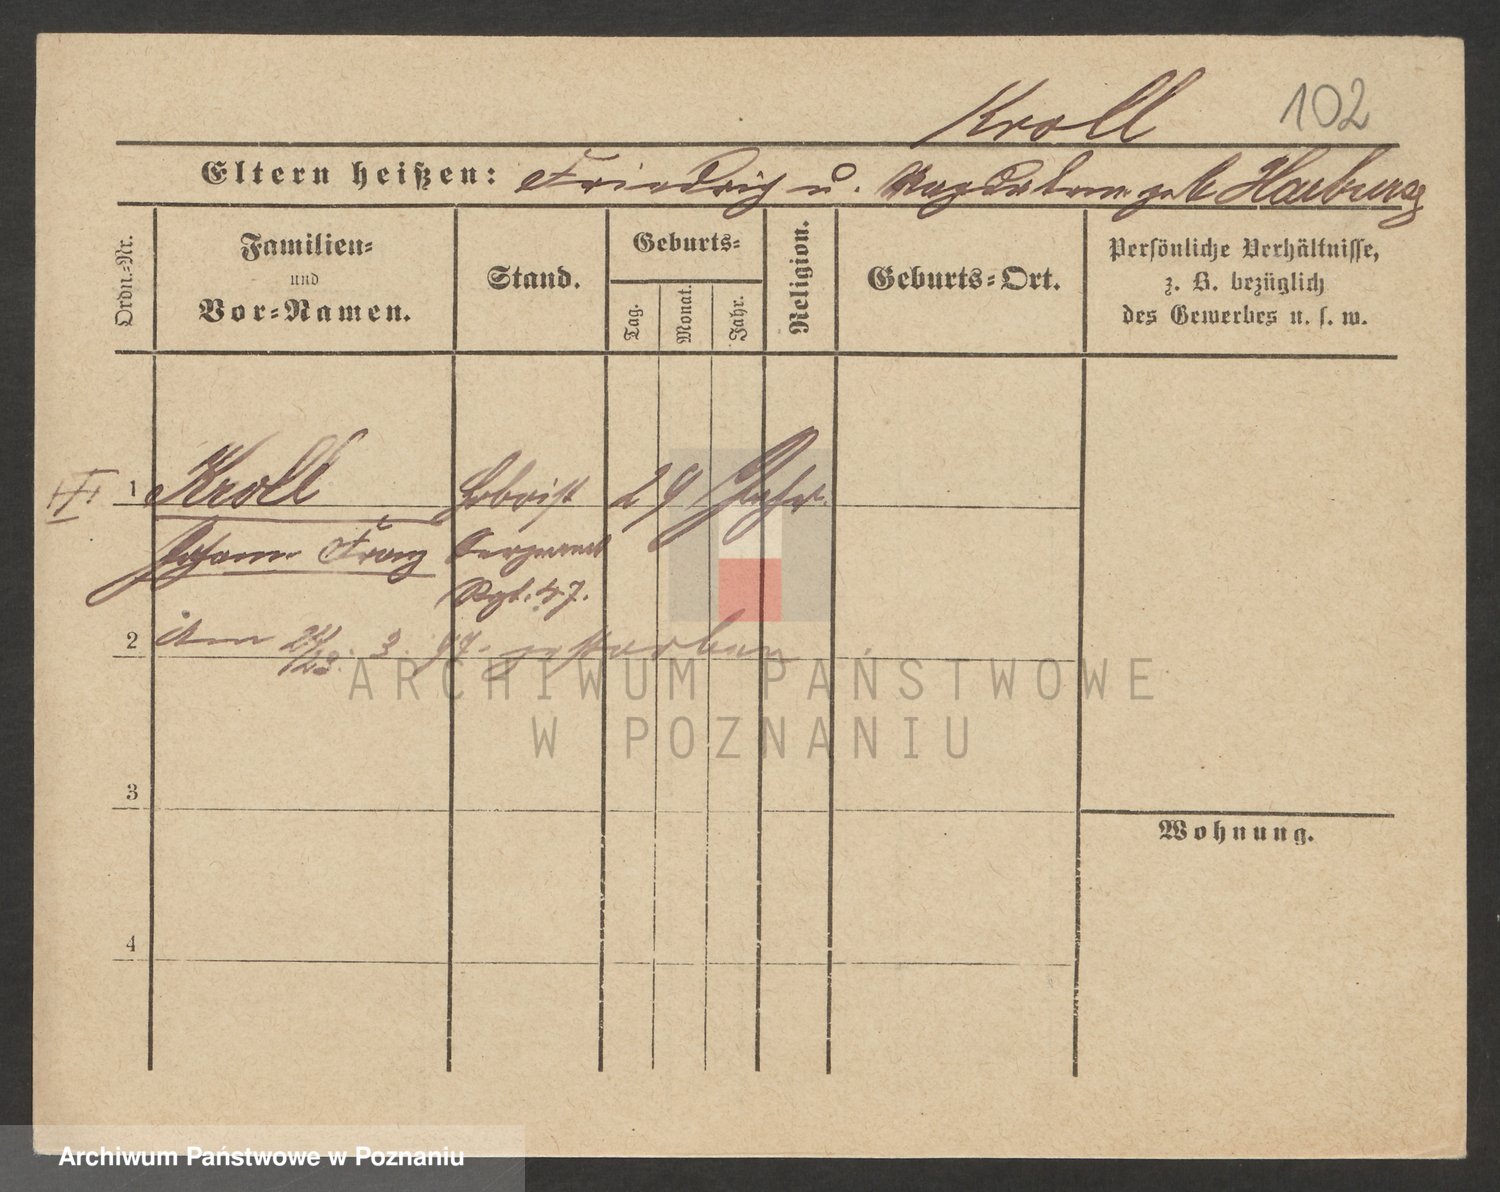 Kroll 102
Eltern heißen: Friedrich u. Magdalena geb. Harburg
Ordn.-Nr.
Familien-
und
Vor-Namen.
Stand.
Geburts-
Tag.
Monat.
Jahr.
Religion.
Geburts-Ort.
Persönliche Verhältnisse,
z. B. bezüglich
des Gewerbes u. s. w.
1 Kroll Hoboist 29 Jahr.
Johann Franz Sergeant
Rgt. 47.
2 am 22/23. 3. 97. gestorben
ARCHIWUM PAŃSTWOWE
W POZNANIU
3
Wohnung.
4
Archiwum Państwowe w Poznaniu